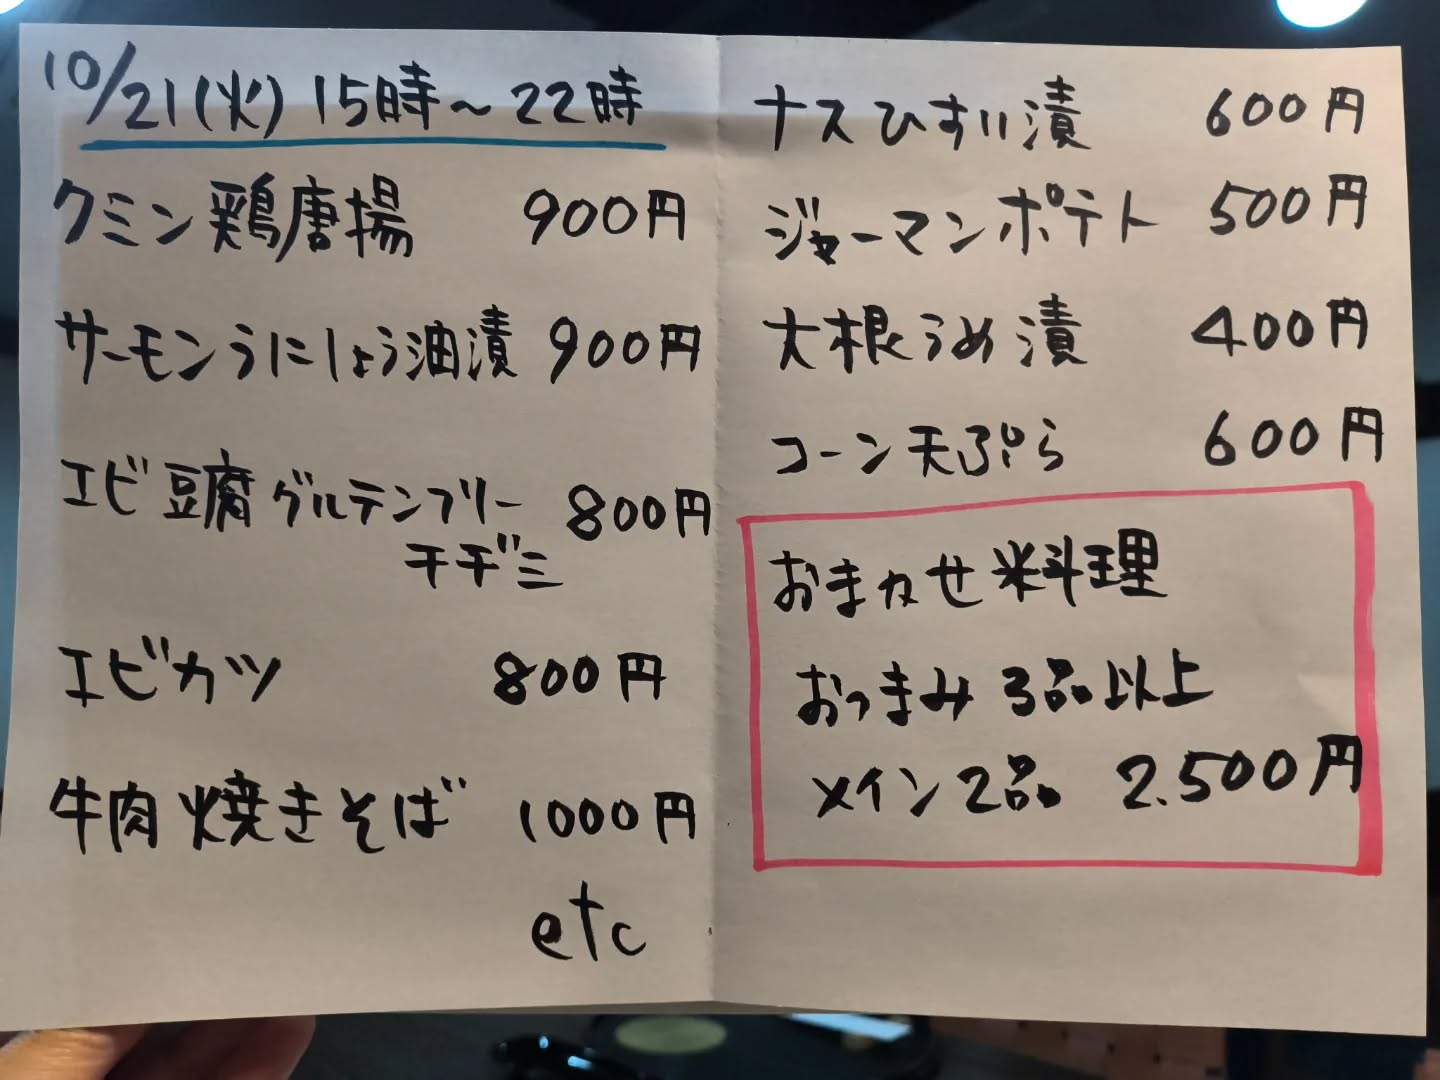 10/21(火) 15時~22時
クミン鶏唐揚 900円
サーモンうにしょう油漬 900円
エビ豆腐グルテンフリー 800円
チヂミ
エビカツ 800円
牛肉焼きそば 1000円
etc
ナスひすい漬 600円
ジャーマンポテト 500円
大根うめ漬 400円
コーン天ぷら 600円
おまかせ料理
おつまみ3品以上
メイン2品 2.500円